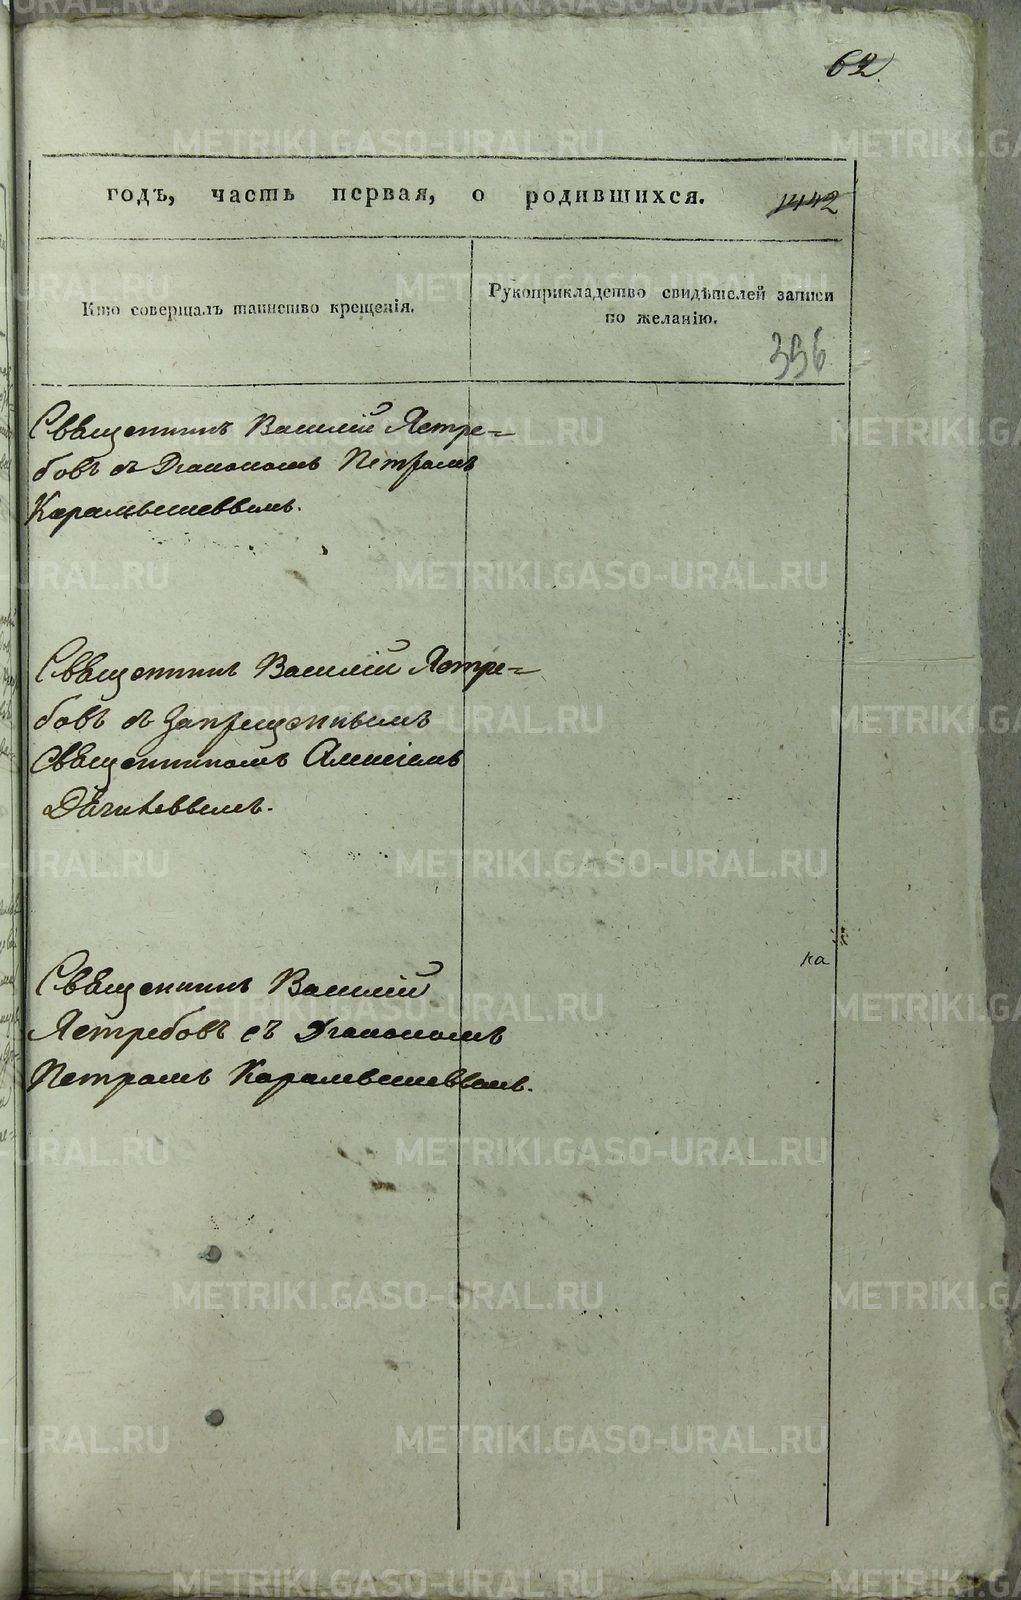 62.
годъ, часть первая, о родившихся.
1442
Кто совершалъ таинство крещенія.
Рукоприкладство свидѣтелей записи
по желанію.
396
Священникъ Василій Ястре=
бовъ съ Діакономъ Петромъ
Карамышеввымъ.
Священникъ Василій Ястре=
бовъ съ Запрещеннымъ
Священникомъ
Священникъ Василій
Ястребовъ съ Діакономъ
Петромъ Карамышеввымъ.
ка
METRIKI.GASO-URAL.RU